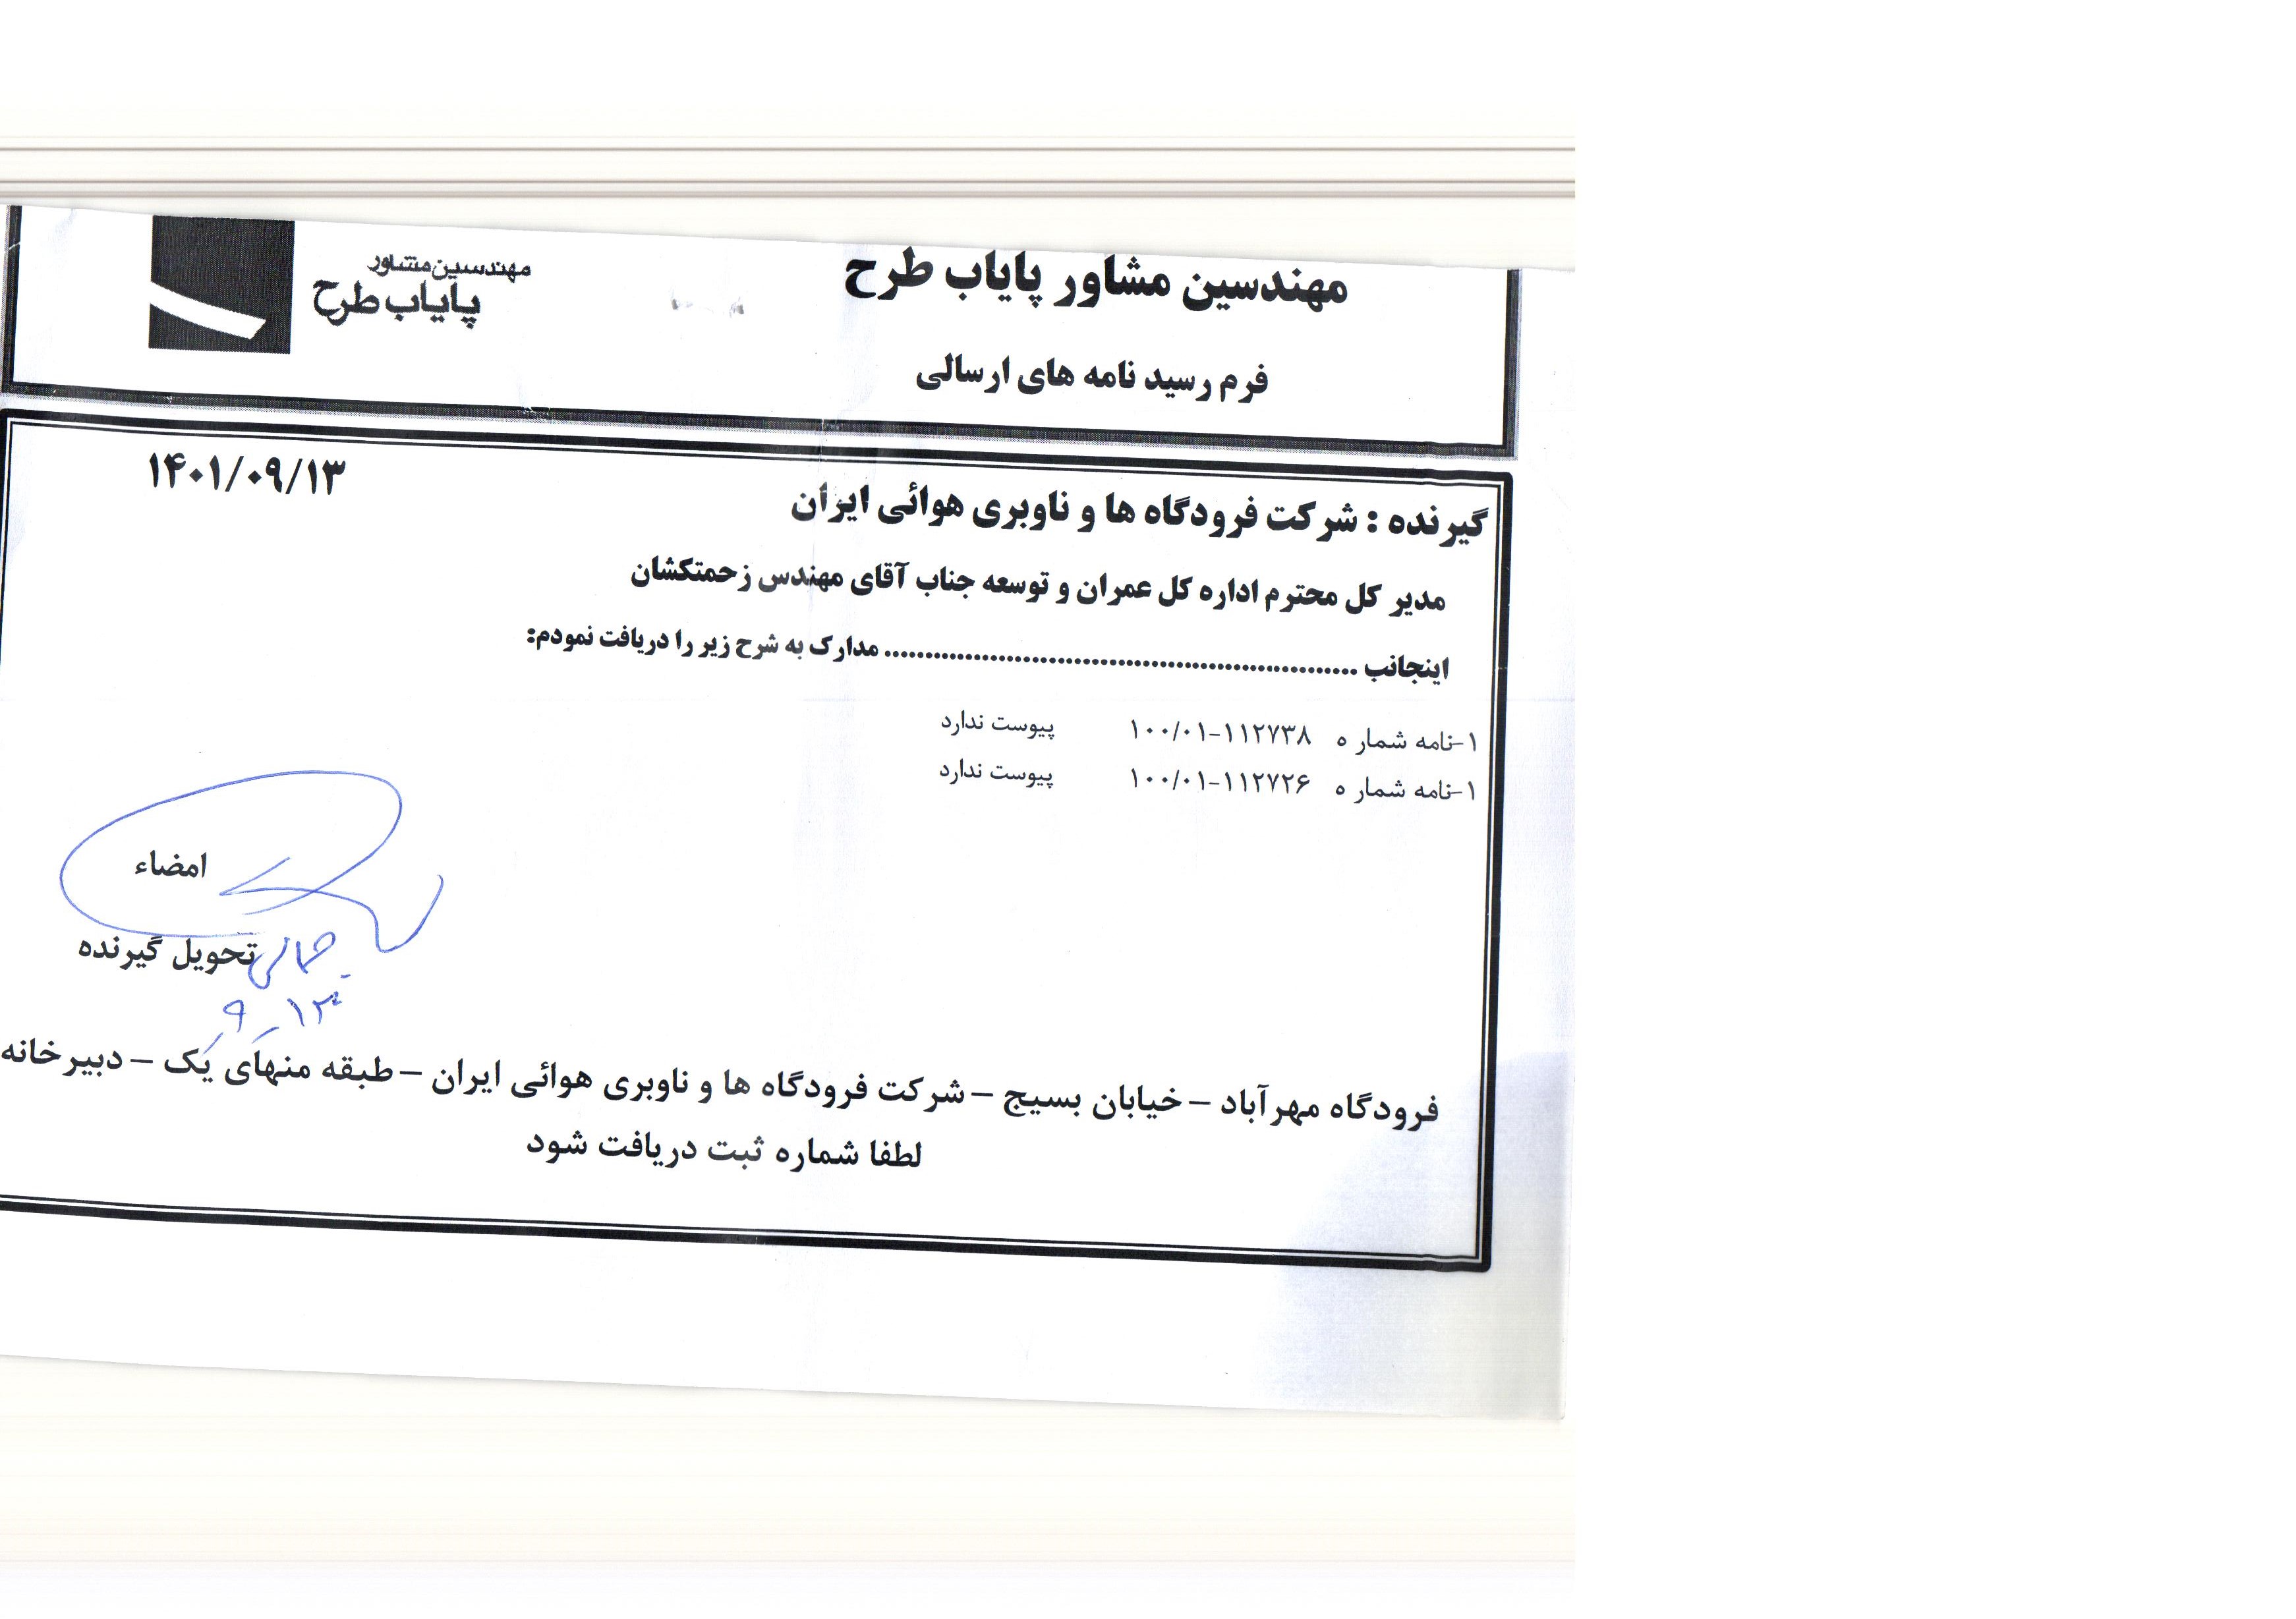 مهندسین مشاور پایاب طرح
مهندسین مشاور
پایاب طرح
فرم رسید نامه های ارسالی
۱۴۰۱/۰۹/۱۳
گیرنده : شرکت فرودگاه ها و ناوبری هوائی ایران
مدیر کل محترم اداره کل عمران و توسعه جناب آقای مهندس زحمتکشان
اینجانب ........................................................... مدارک به شرح زیر را دریافت نمودم:
۱-نامه شمار ه ۱۰۰/۰۱-۱۱۲۷۳۸ پیوست ندارد
۱-نامه شمار ه ۱۰۰/۰۱-۱۱۲۷۲۶ پیوست ندارد
امضاء
تحویل گیرنده
۹-۱۳
فرودگاه مهرآباد – خیابان بسیج – شرکت فرودگاه ها و ناوبری هوائی ایران – طبقه منهای یک – دبیرخانه
لطفا شماره ثبت دریافت شود